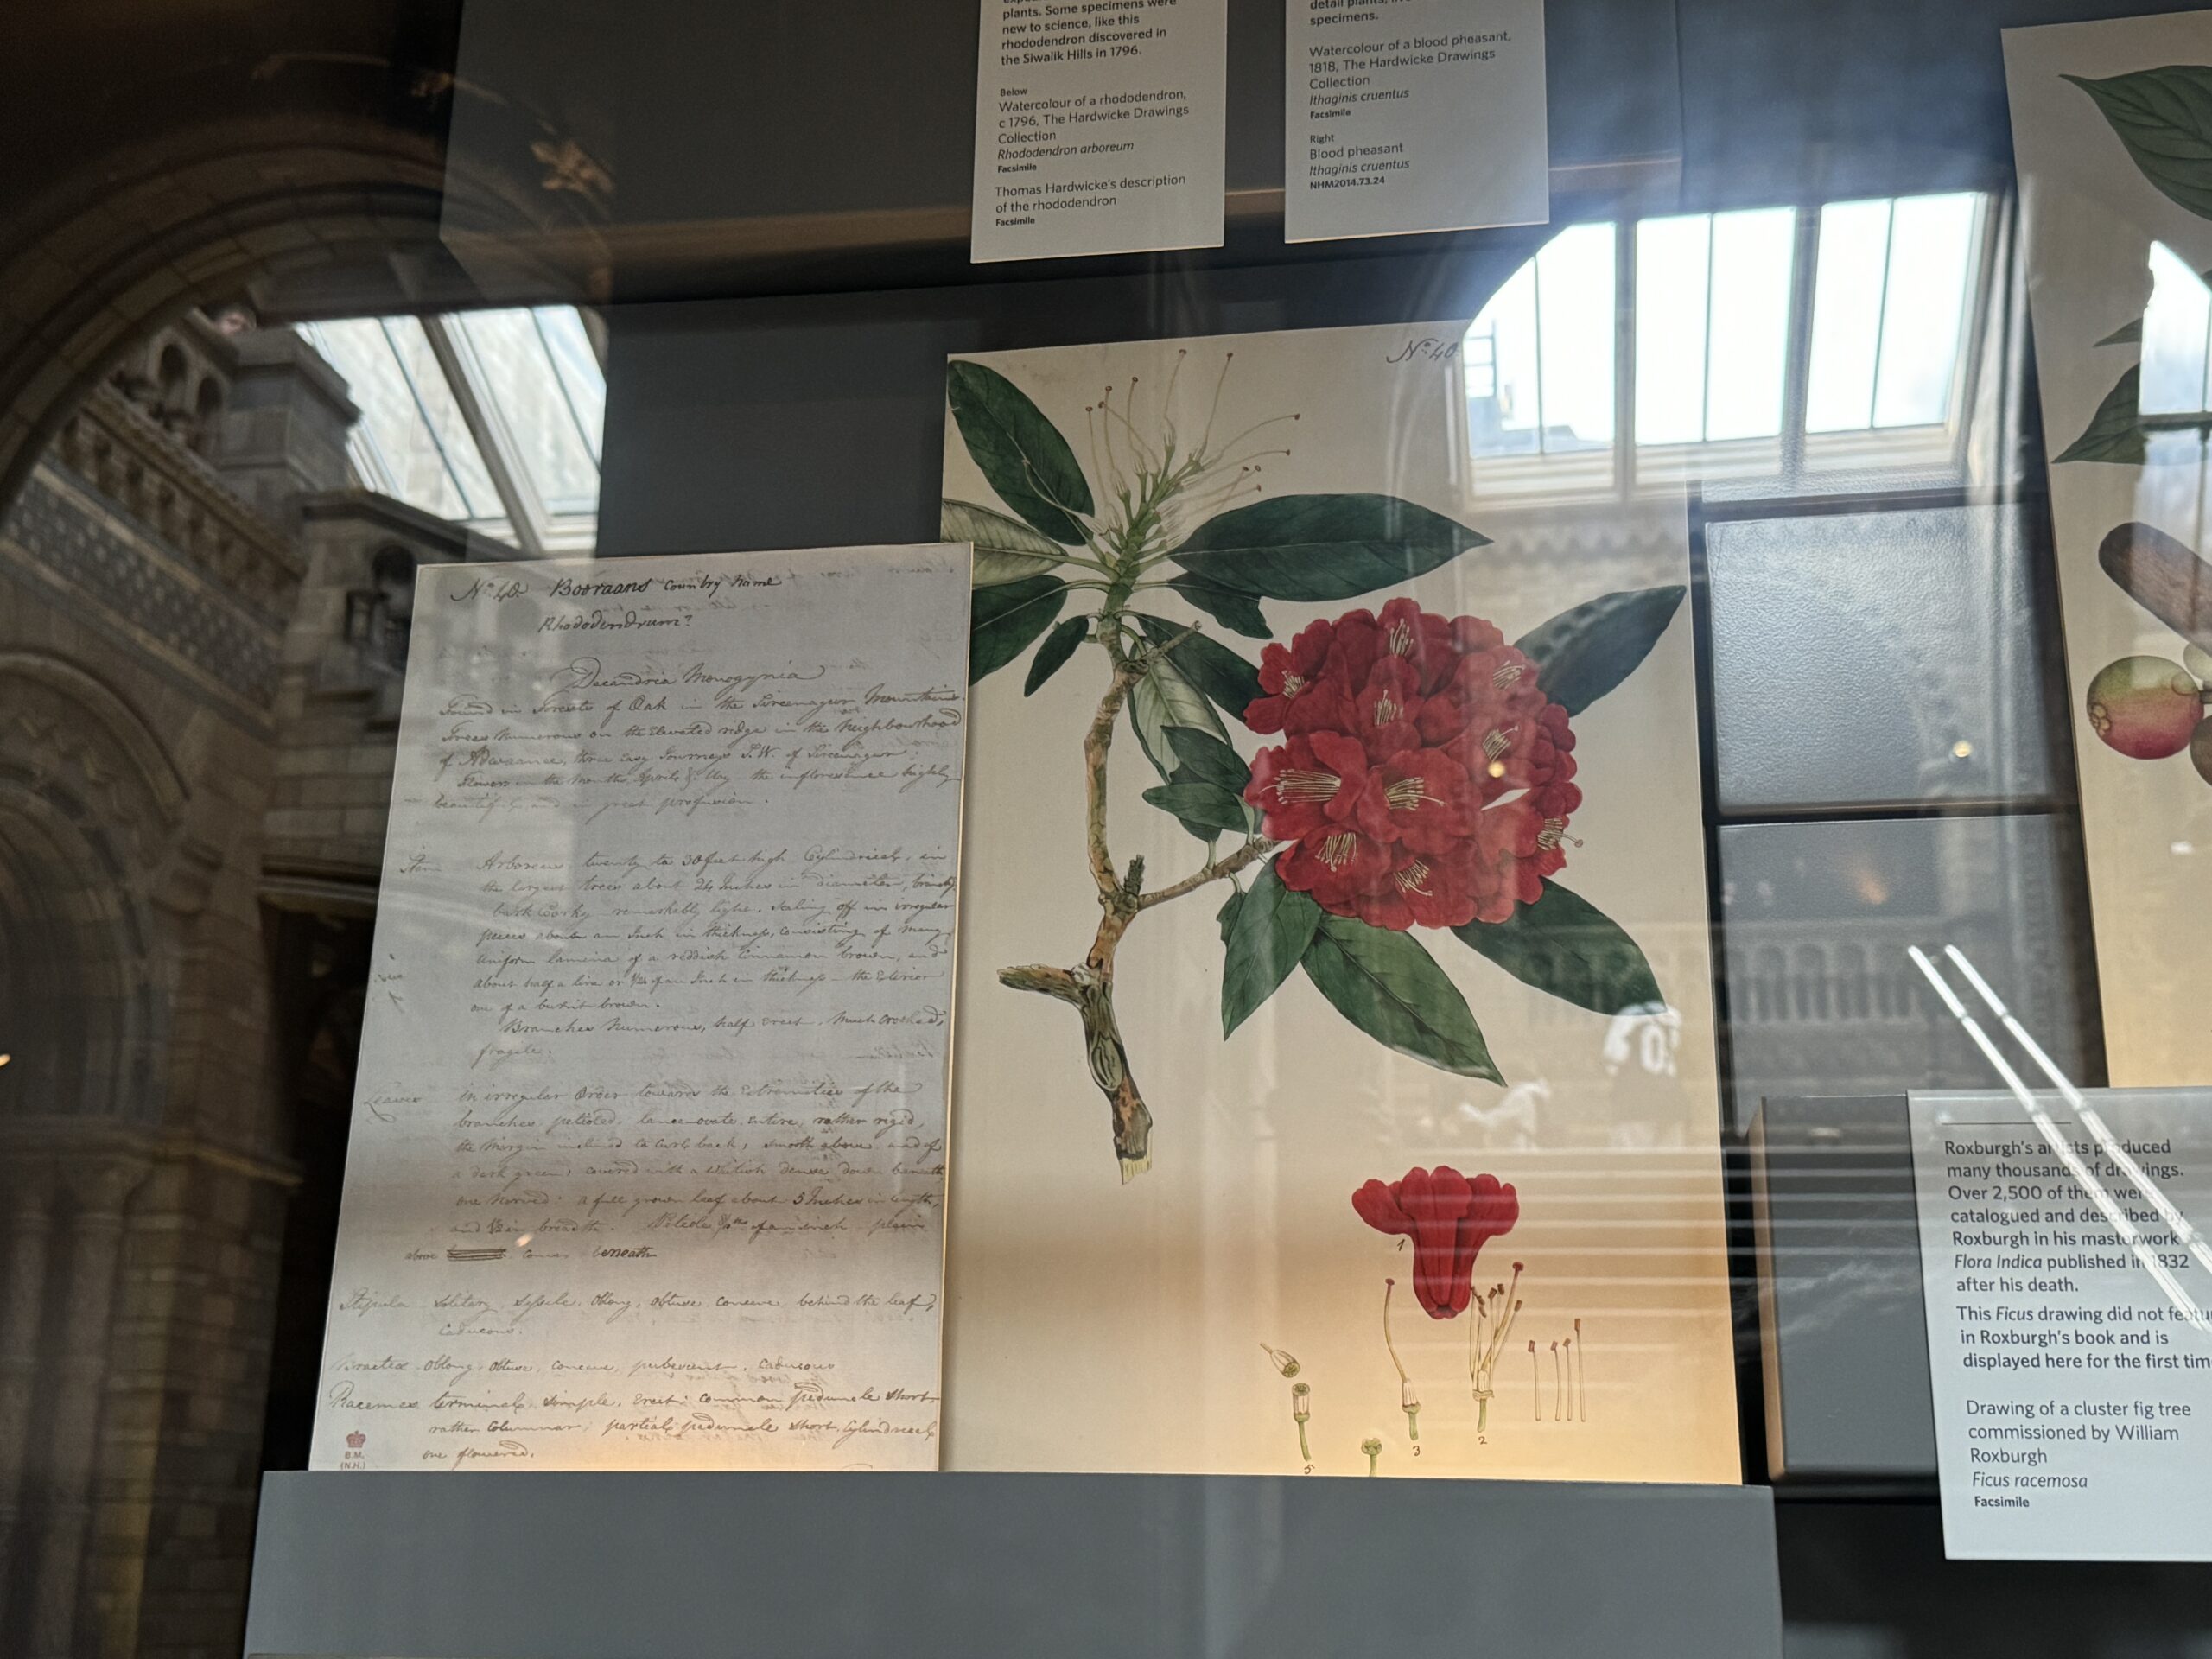 plants. Some specimens were
new to science, like this
rhododendron discovered in
the Siwalik Hills in 1796.
Below
Watercolour of a rhododendron,
c 1796, The Hardwicke Drawings
Collection
Rhododendron arboreum
Facsimile
Thomas Hardwicke's description
of the rhododendron
Facsimile
detail plants,
specimens.
Watercolour of a blood pheasant,
1818, The Hardwicke Drawings
Collection
Ithaginis cruentus
Facsimile
Right
Blood pheasant
Ithaginis cruentus
NHM2014.73.24
No. 40
No. 40. Booraans Country name
Rhododendrum?
Decandria Monogynia
Found in Forests of Oak in the Sireenagur Mountains.
Trees numerous on the elevated ridge in the neighbourhood
of Adwaanee, three easy Journeys S.W. of Sireenagur;
Flowers in the months April & May the inflorescence highly
beautiful and in great profusion.
Stem Arboreus twenty to 30 feet high Cylindrical, in
the largest trees about 24 Inches in diameter,
bark Corky remarkably light, scaling off in irregular
pieces about an Inch in thickness, consisting of many
uniform lamina of a reddish Cinnamon brown, and
about half a line or 1/24 of an Inch in thickness the Exterior
one of a burnt brown.
Branches numerous, half erect, much crooked,
fragile.
Leaves in irregular Order towards the Extremities of the
branches, petioled, lanceovate, entire, rather rigid,
the Margin inclined to curl back, smooth above and of
a dark green, covered with a whitish dense down beneath
one nerved: a full grown leaf about 5 Inches in length,
and 1½ in breadth. Petiole of an inch plain
above convex beneath
Stipula Solitary, Sessile, Oblong, obtuse, concave, behind the leaf,
Caducous.
Bractea oblong, obtuse, concave, pubescent, Caducous
Racemes terminal, simple, erect; common peduncle short
rather Columnar; partial peduncle short, Cylindrical,
one flowered.
B.M.
(N.H.)
1
2
3
5
Roxburgh's artists produced
many thousands of drawings.
Over 2,500 of them were
catalogued and described by
Roxburgh in his masterwork
Flora Indica published in 1832
after his death.
This Ficus drawing did not
in Roxburgh's book and is
displayed here for the first
Drawing of a cluster fig tree
commissioned by William
Roxburgh
Ficus racemosa
Facsimile